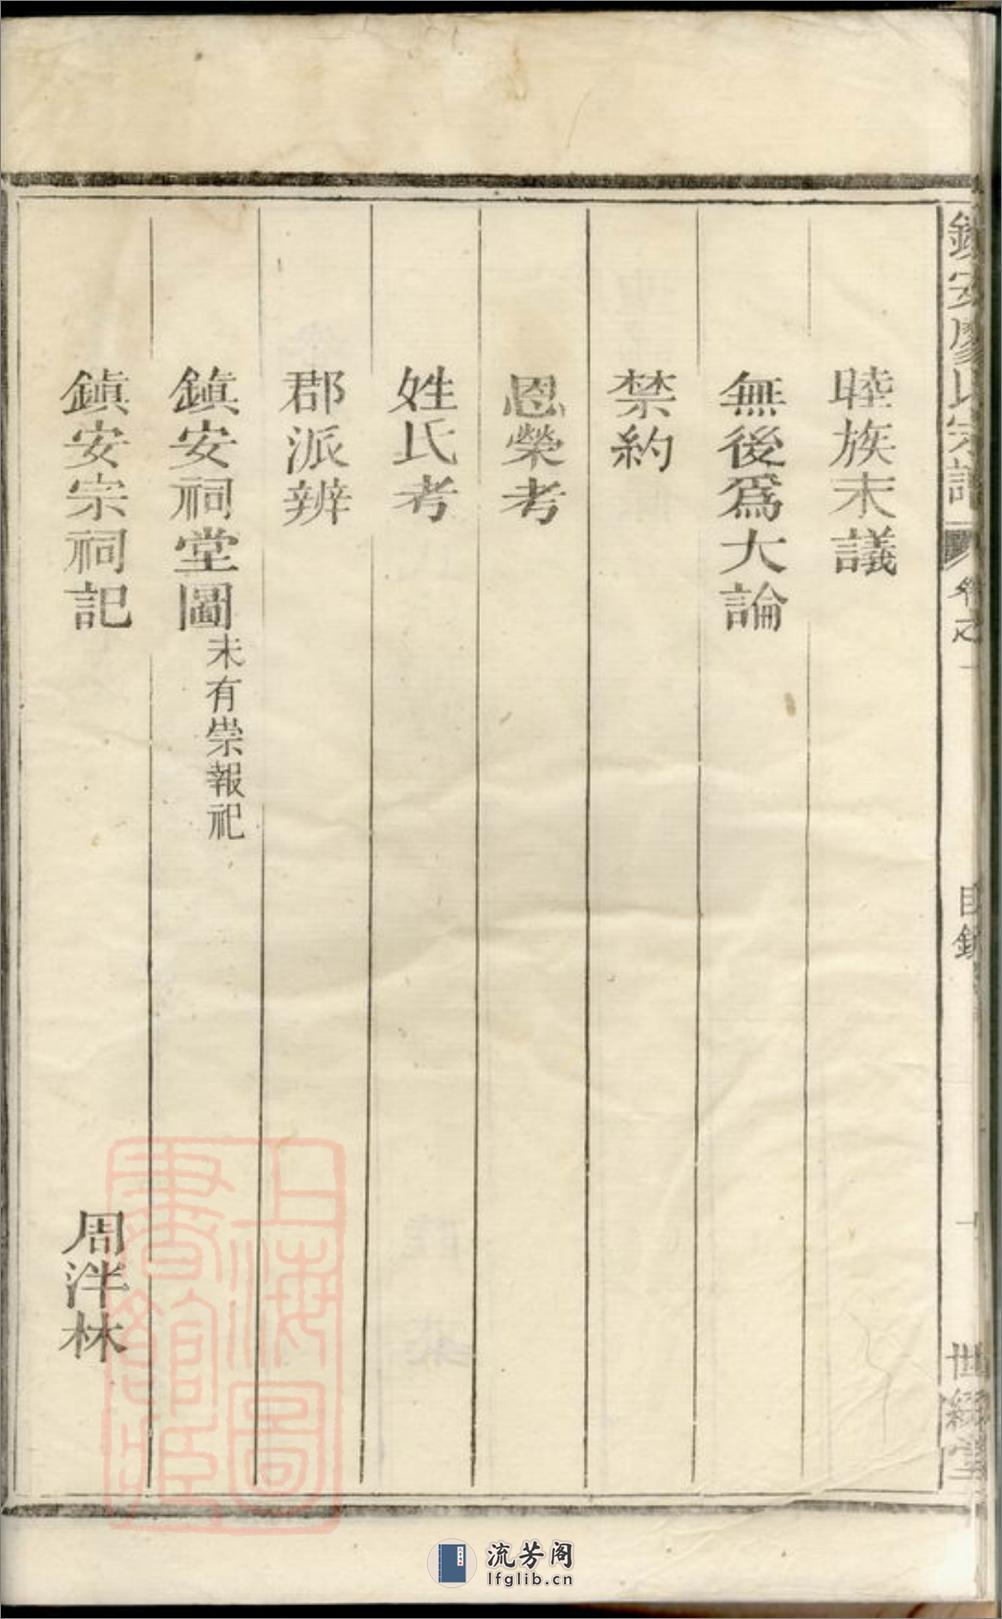 鎮安廖氏宗譜
卷之一
目錄
一
世綵堂
睦族末議
無後爲大論
禁約
恩榮考
姓氏考
郡派辨
鎮安祠堂圖未有崇報祀
鎮安宗祠記
周泮林
上海圖
書館藏
流芳阁
lfglib.cn